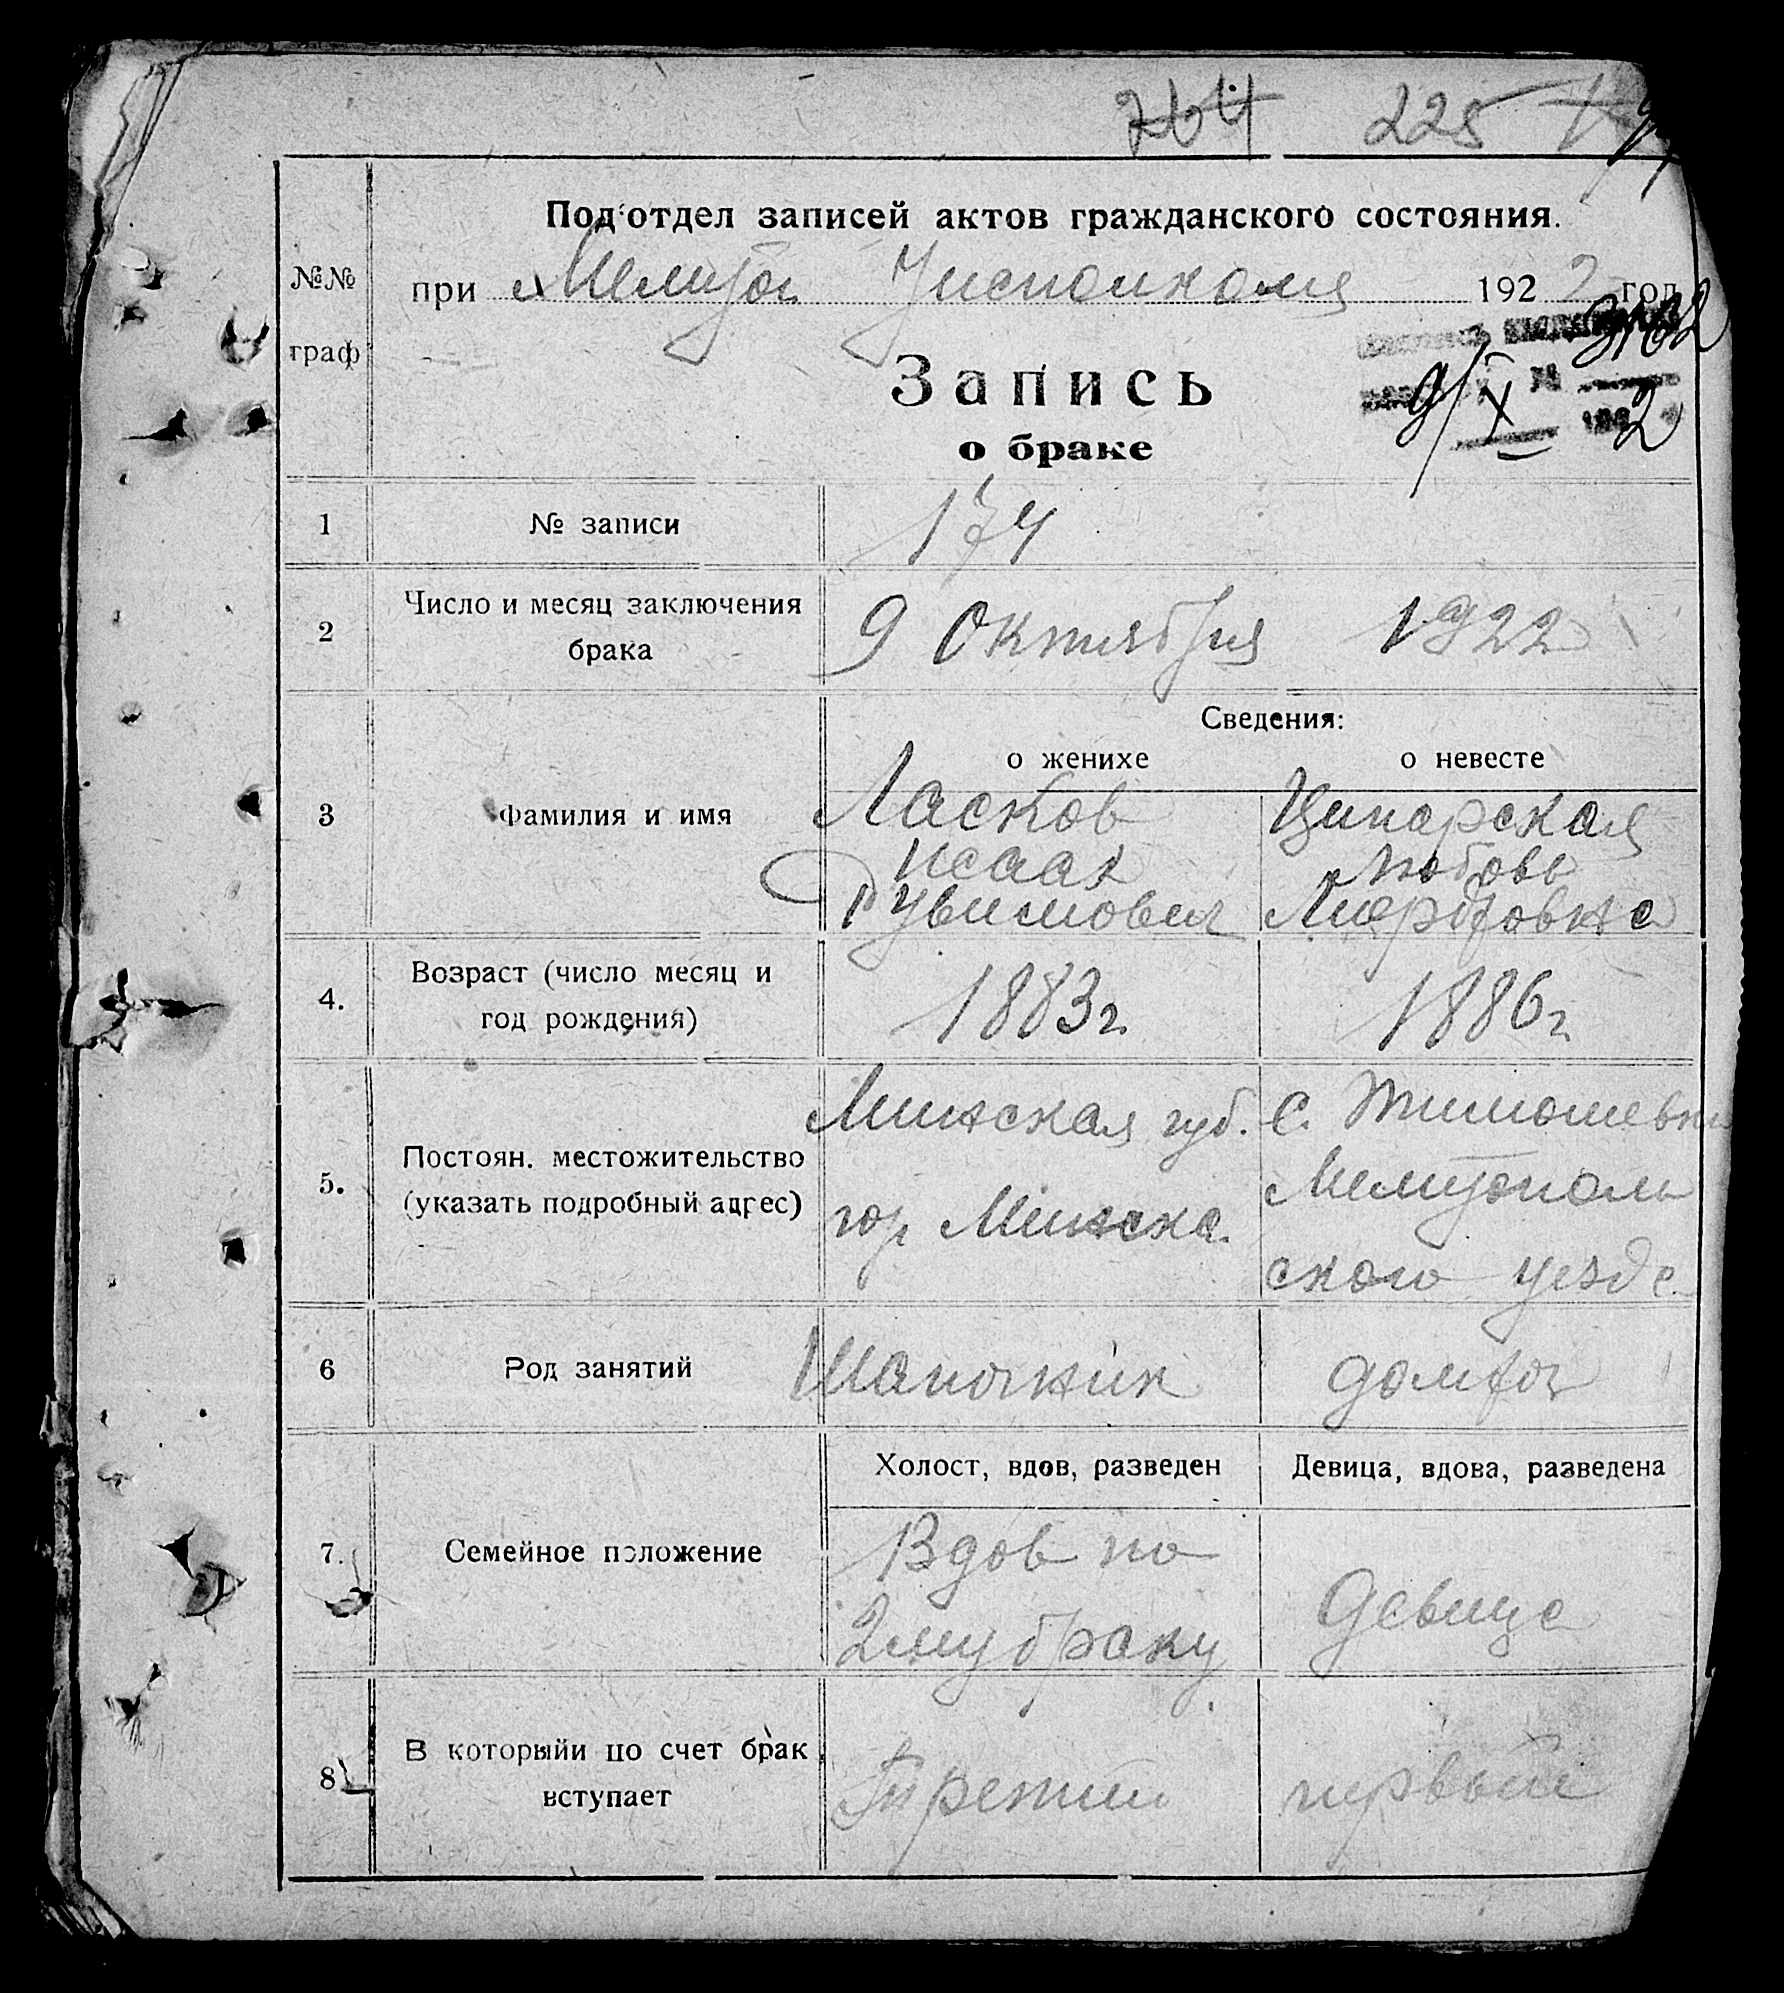 764 225
Подотдел записей актов гражданского состояния.
№№ при Мелитоп Уисполкоме 1922 год
граф
Запись 9/X 2
о браке
1 № записи 174
2 Число и месяц заключения 9 Октября 1922
брака
Сведения:
о женихе о невесте
3 Фамилия и имя Ласков
Исаак Любовь
Рувимович
4. Возраст (число месяц и 1883г. 1886г
год рождения)
Минская губ. С. Тимошевки
5. Постоян. местожительство Мелитополь
(указать подробный адрес) гор Минска.
ского уезда
6 Род занятий Шапочник домхоз
Холост, вдов, разведен Девица, вдова, разведена
7. Семейное положение Вдов по Девица
2му браку
8 В которыйи по счет брак Третий первый
вступает